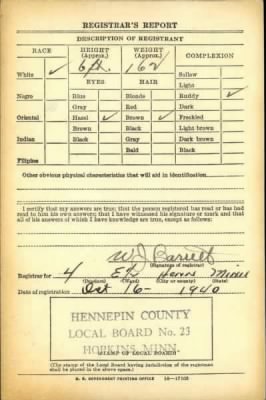 REGISTRAR'S REPORT
DESCRIPTION OF REGISTRANT
RACE
HEIGHT (Approx.)
WEIGHT (Approx.)
COMPLEXION
White ✓
6 ft.
162
Sallow
Light
EYES
HAIR
Negro
Blue
Blonde
Ruddy ✓
Gray
Red
Dark
Oriental
Hazel ✓
Brown ✓
Freckled
Brown
Black
Light brown
Indian
Black
Gray
Dark brown
Bald
Black
Filipino
Other obvious physical characteristics that will aid in identification
I certify that my answers are true; that the person registered has read or has had
read to him his own answers; that I have witnessed his signature or mark and that
all of his answers of which I have knowledge are true, except as follows:
W J Barrett
(Signature of registrar)
Registrar for 4 Henn Minn
(Precinct) (Ward) (City or county) (State)
Date of registration Oct 16- 1940
HENNEPIN COUNTY
LOCAL BOARD No. 23
HOPKINS, MINN.
(STAMP OF LOCAL BOARD)
(The stamp of the Local Board having jurisdiction of the registrant
shall be placed in the above space.)
U. S. GOVERNMENT PRINTING OFFICE 16-17105